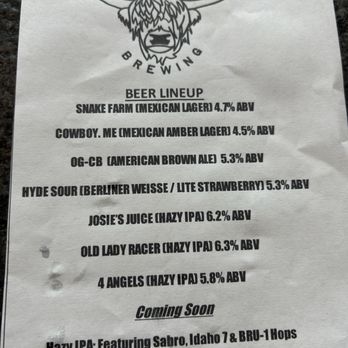 BREWING
BEER LINEUP
SNAKE FARM (MEXICAN LAGER) 4.7% ABV
COWBOY. ME (MEXICAN AMBER LAGER) 4.5% ABV
OG-CB (AMERICAN BROWN ALE) 5.3% ABV
HYDE SOUR (BERLINER WEISSE / LITE STRAWBERRY) 5.3% ABV
JOSIE'S JUICE (HAZY IPA) 6.2% ABV
OLD LADY RACER (HAZY IPA) 6.3% ABV
4 ANGELS (HAZY IPA) 5.8% ABV
Coming Soon
Hazy IPA: Featuring Sabro, Idaho 7 & BRU-1 Hops